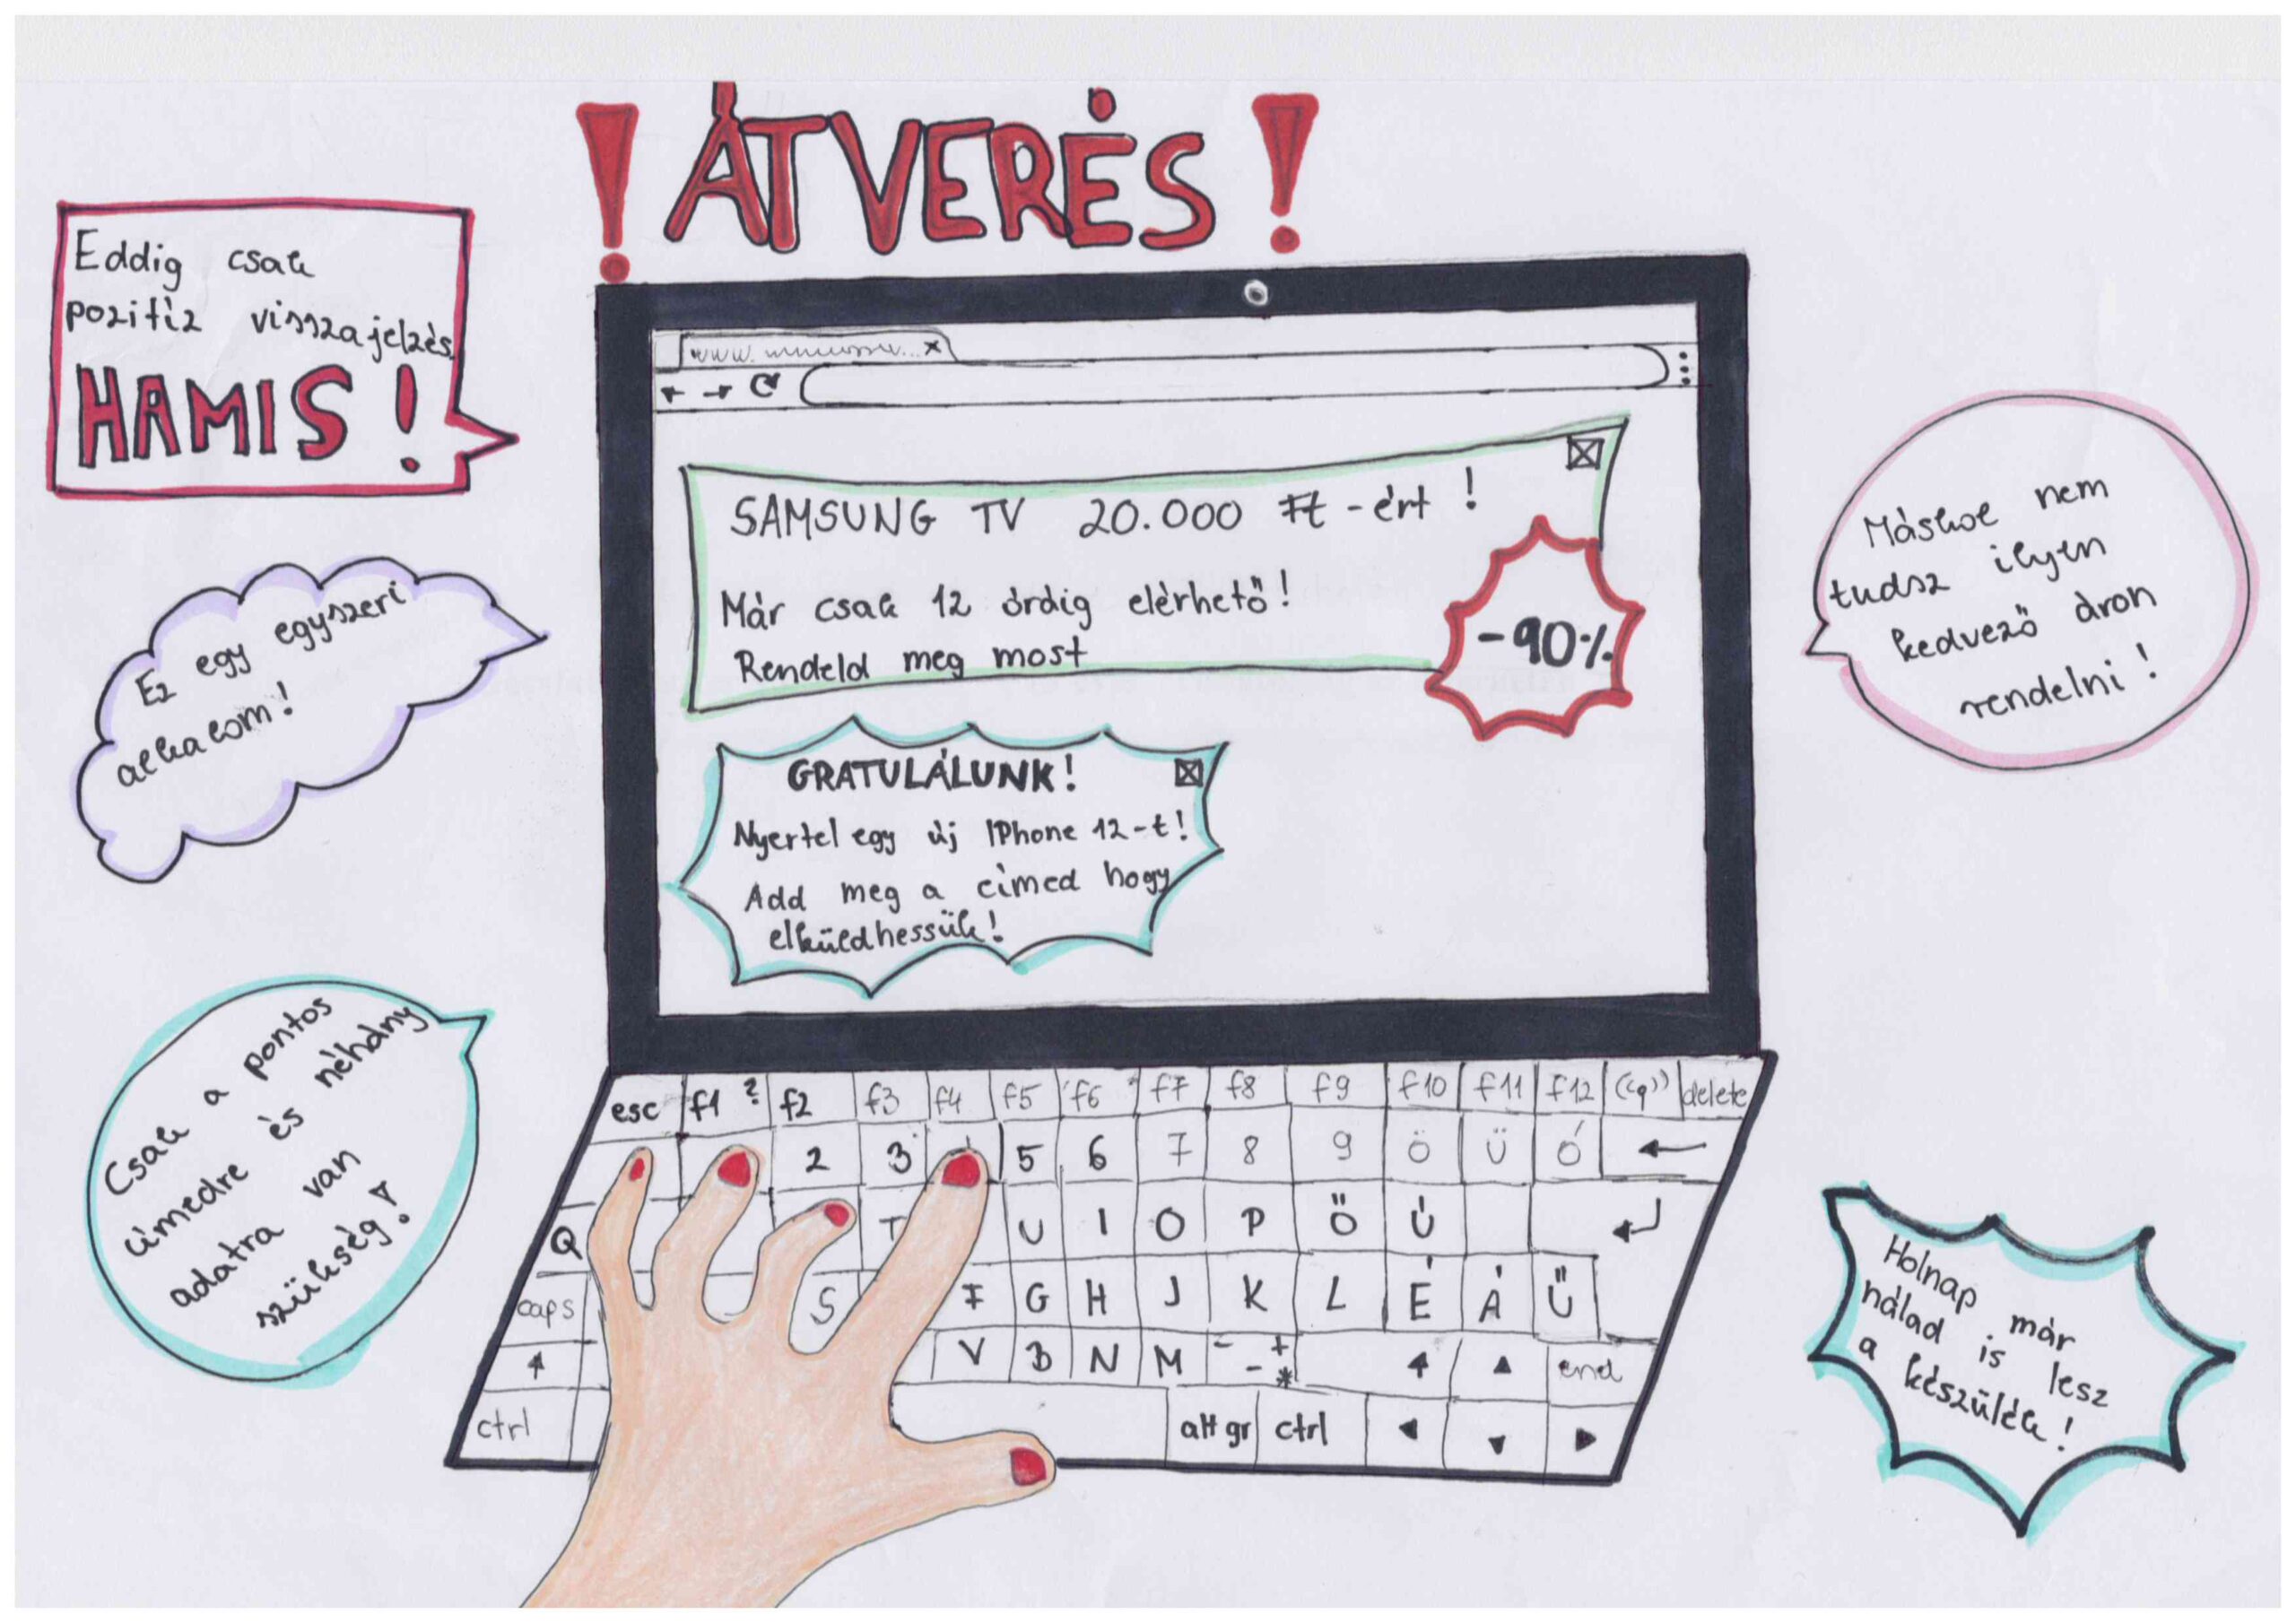 ! ÁTVERÉS !
Eddig csak
pozitív visszajelzés
HAMIS!
Ez egy egyszeri
alkalom!
Csak a pontos
címedre és néhány
adatra van
szükség!
www.
SAMSUNG TV 20.000 Ft-ért!
Már csak 12 óráig elérhető!
Rendeld meg most
-90%
GRATULÁLUNK!
Nyertel egy új IPhone 12-t!
Add meg a címed hogy
elküldhessük!
Máshol nem
tudsz ilyen
kedvező áron
rendelni!
Holnap már
nálad is lesz
a készülék!
esc f1 ? f2 f3 f4 f5 f6 f7 f8 f9 f10 f11 f12 ((q)) delete
2 3 5 6 7 8 9 Ö Ü Ó ←
Q T U I O P Ő Ú
caps S F G H J K L É Á Ű
V B N M - - + * end
ctrl alt gr ctrl